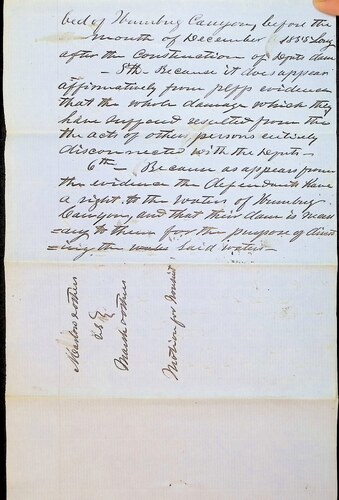 bed of Humbug Canyon, before the
month of December 1855 long
after the Construction of Dfts dam
- 5th - Because it does appear
affirmatively from plffs evidence
that the whole damage which they
have suffered resulted from the
the acts of others persons entirely
disconnected with the Dfts -
6th - Because as appears from
the evidence the defendants have
a right to the waters of Humbug
Canyon, and that their dam is neces
=ary to them for the purpose of divert
=ing the said water -
& others
vs
& others
Motion for Nonsuit